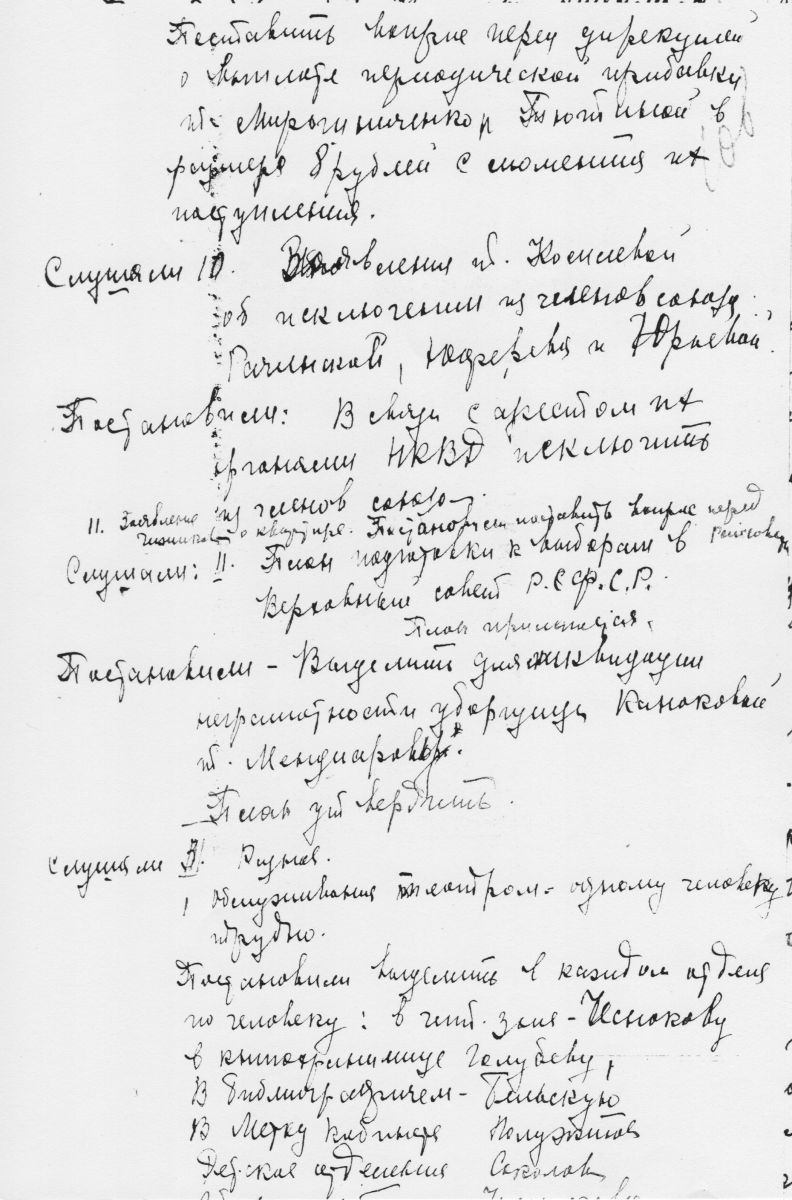 Поставить вопрос перед дирекцией
о выплате периодической прибавки
тт. Мирошниченко и Тютиной в
размере 8 рублей с момента их
поступления.
Слушали 10. Заявления т. Косилевой
об исключении из членов союза
Рачинской, и Юрьевой.
Постановили: В связи с арестом их
органами НКВД исключить
из членов союза.
11. Заявление о квартире. Постановили поставить вопрос перед
Слушали: II. План подготовки к выборам в
Верховный совет Р.С.Ф.С.Р.
План прилагается.
Постановили – Выделить для ликвидации
неграмотности уборщицы Канюковой
т.
План утвердить.
Слушали Разное.
1 Обслуживания театром – одному человеку
трудно.
Постановили выделить в каждом отделе
по человеку: в чит. зале – Чеснокову
в книгохранилище Голубеву,
В библиографичем – Бельскую
В Метод кабинете
Детское отделения Соколов